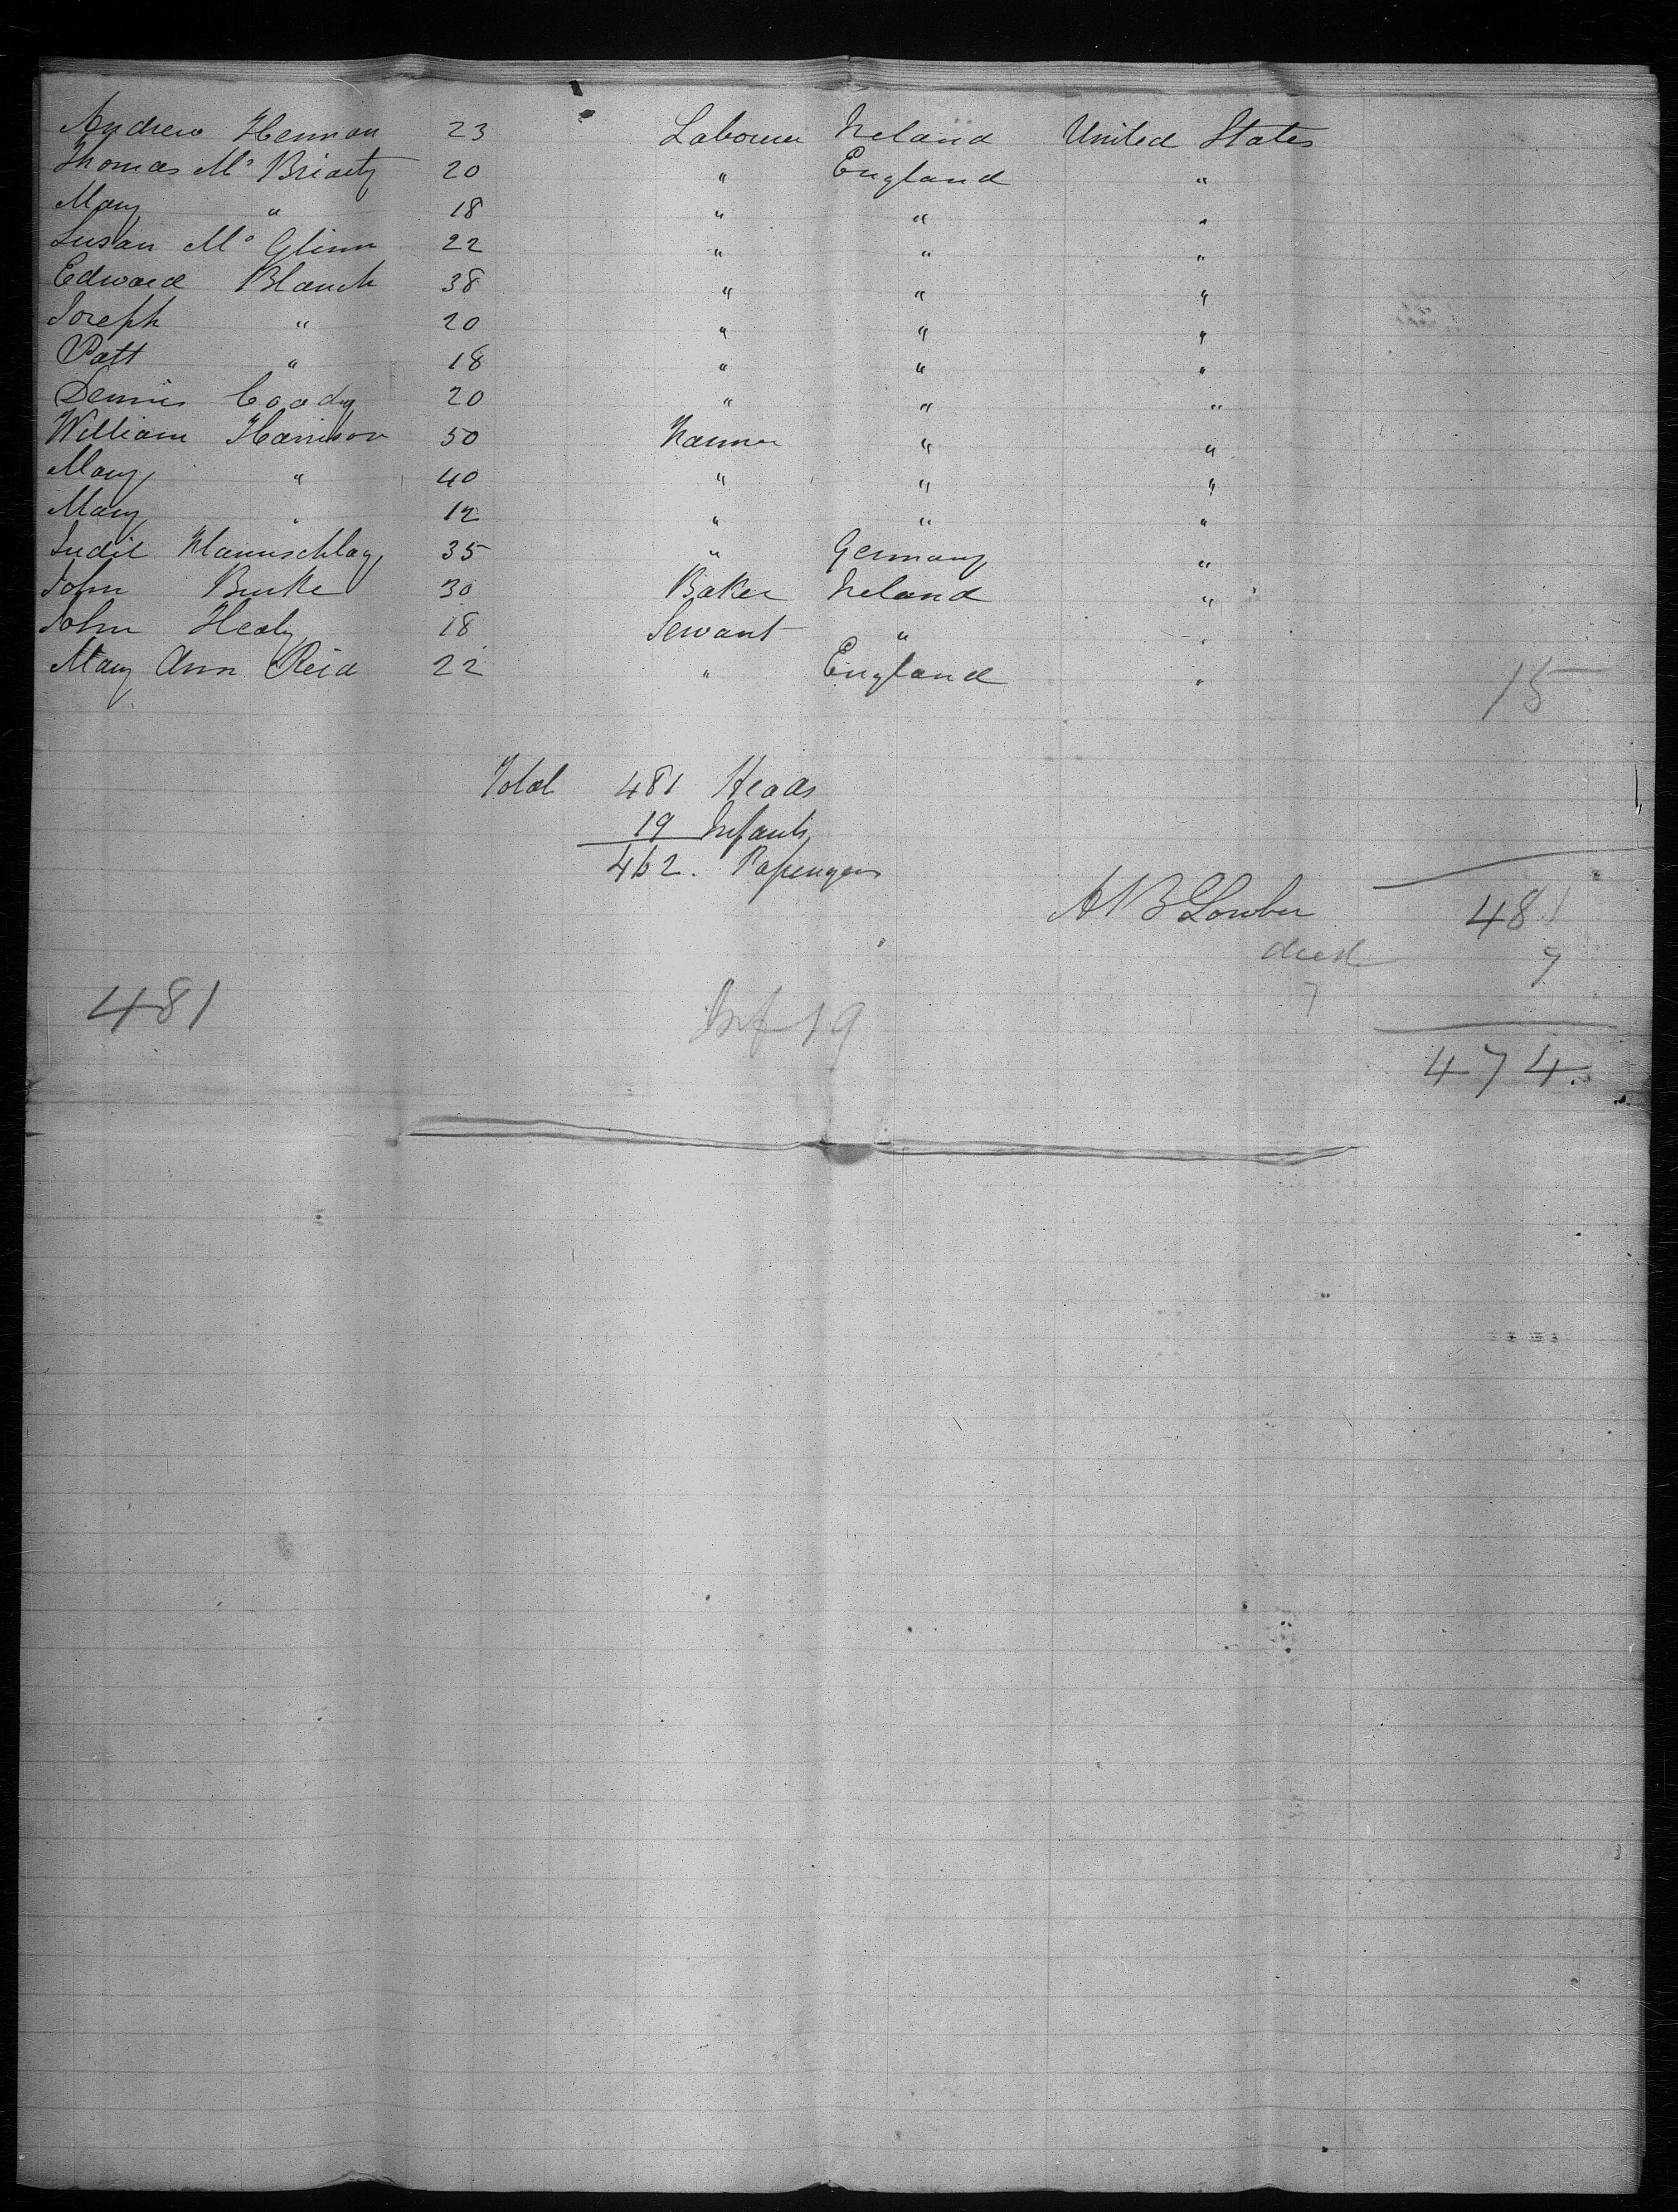 Andrew Hennon 23 Labourer Ireland United States
Thomas Mc Briarty 20 " England "
Mary " 18 " " "
Susan Mc Glinn 22 " " "
Edward Blanch 38 " " "
Joseph " 20 " " "
Patt " 18 " " "
Dennis Coody 20 " " "
William Harrison 50 Farmer " "
Mary " 40 " " "
Mary " 12 " " "
35 " Germany "
John Burke 30 Baker Ireland "
John Healy 18 Servant " "
Mary Ann Reid 22 " England "
15
Total 481 Heads
19 Infants
462. Passengers
A B Lowber 481
died 7
7
481 Inf 19
474.